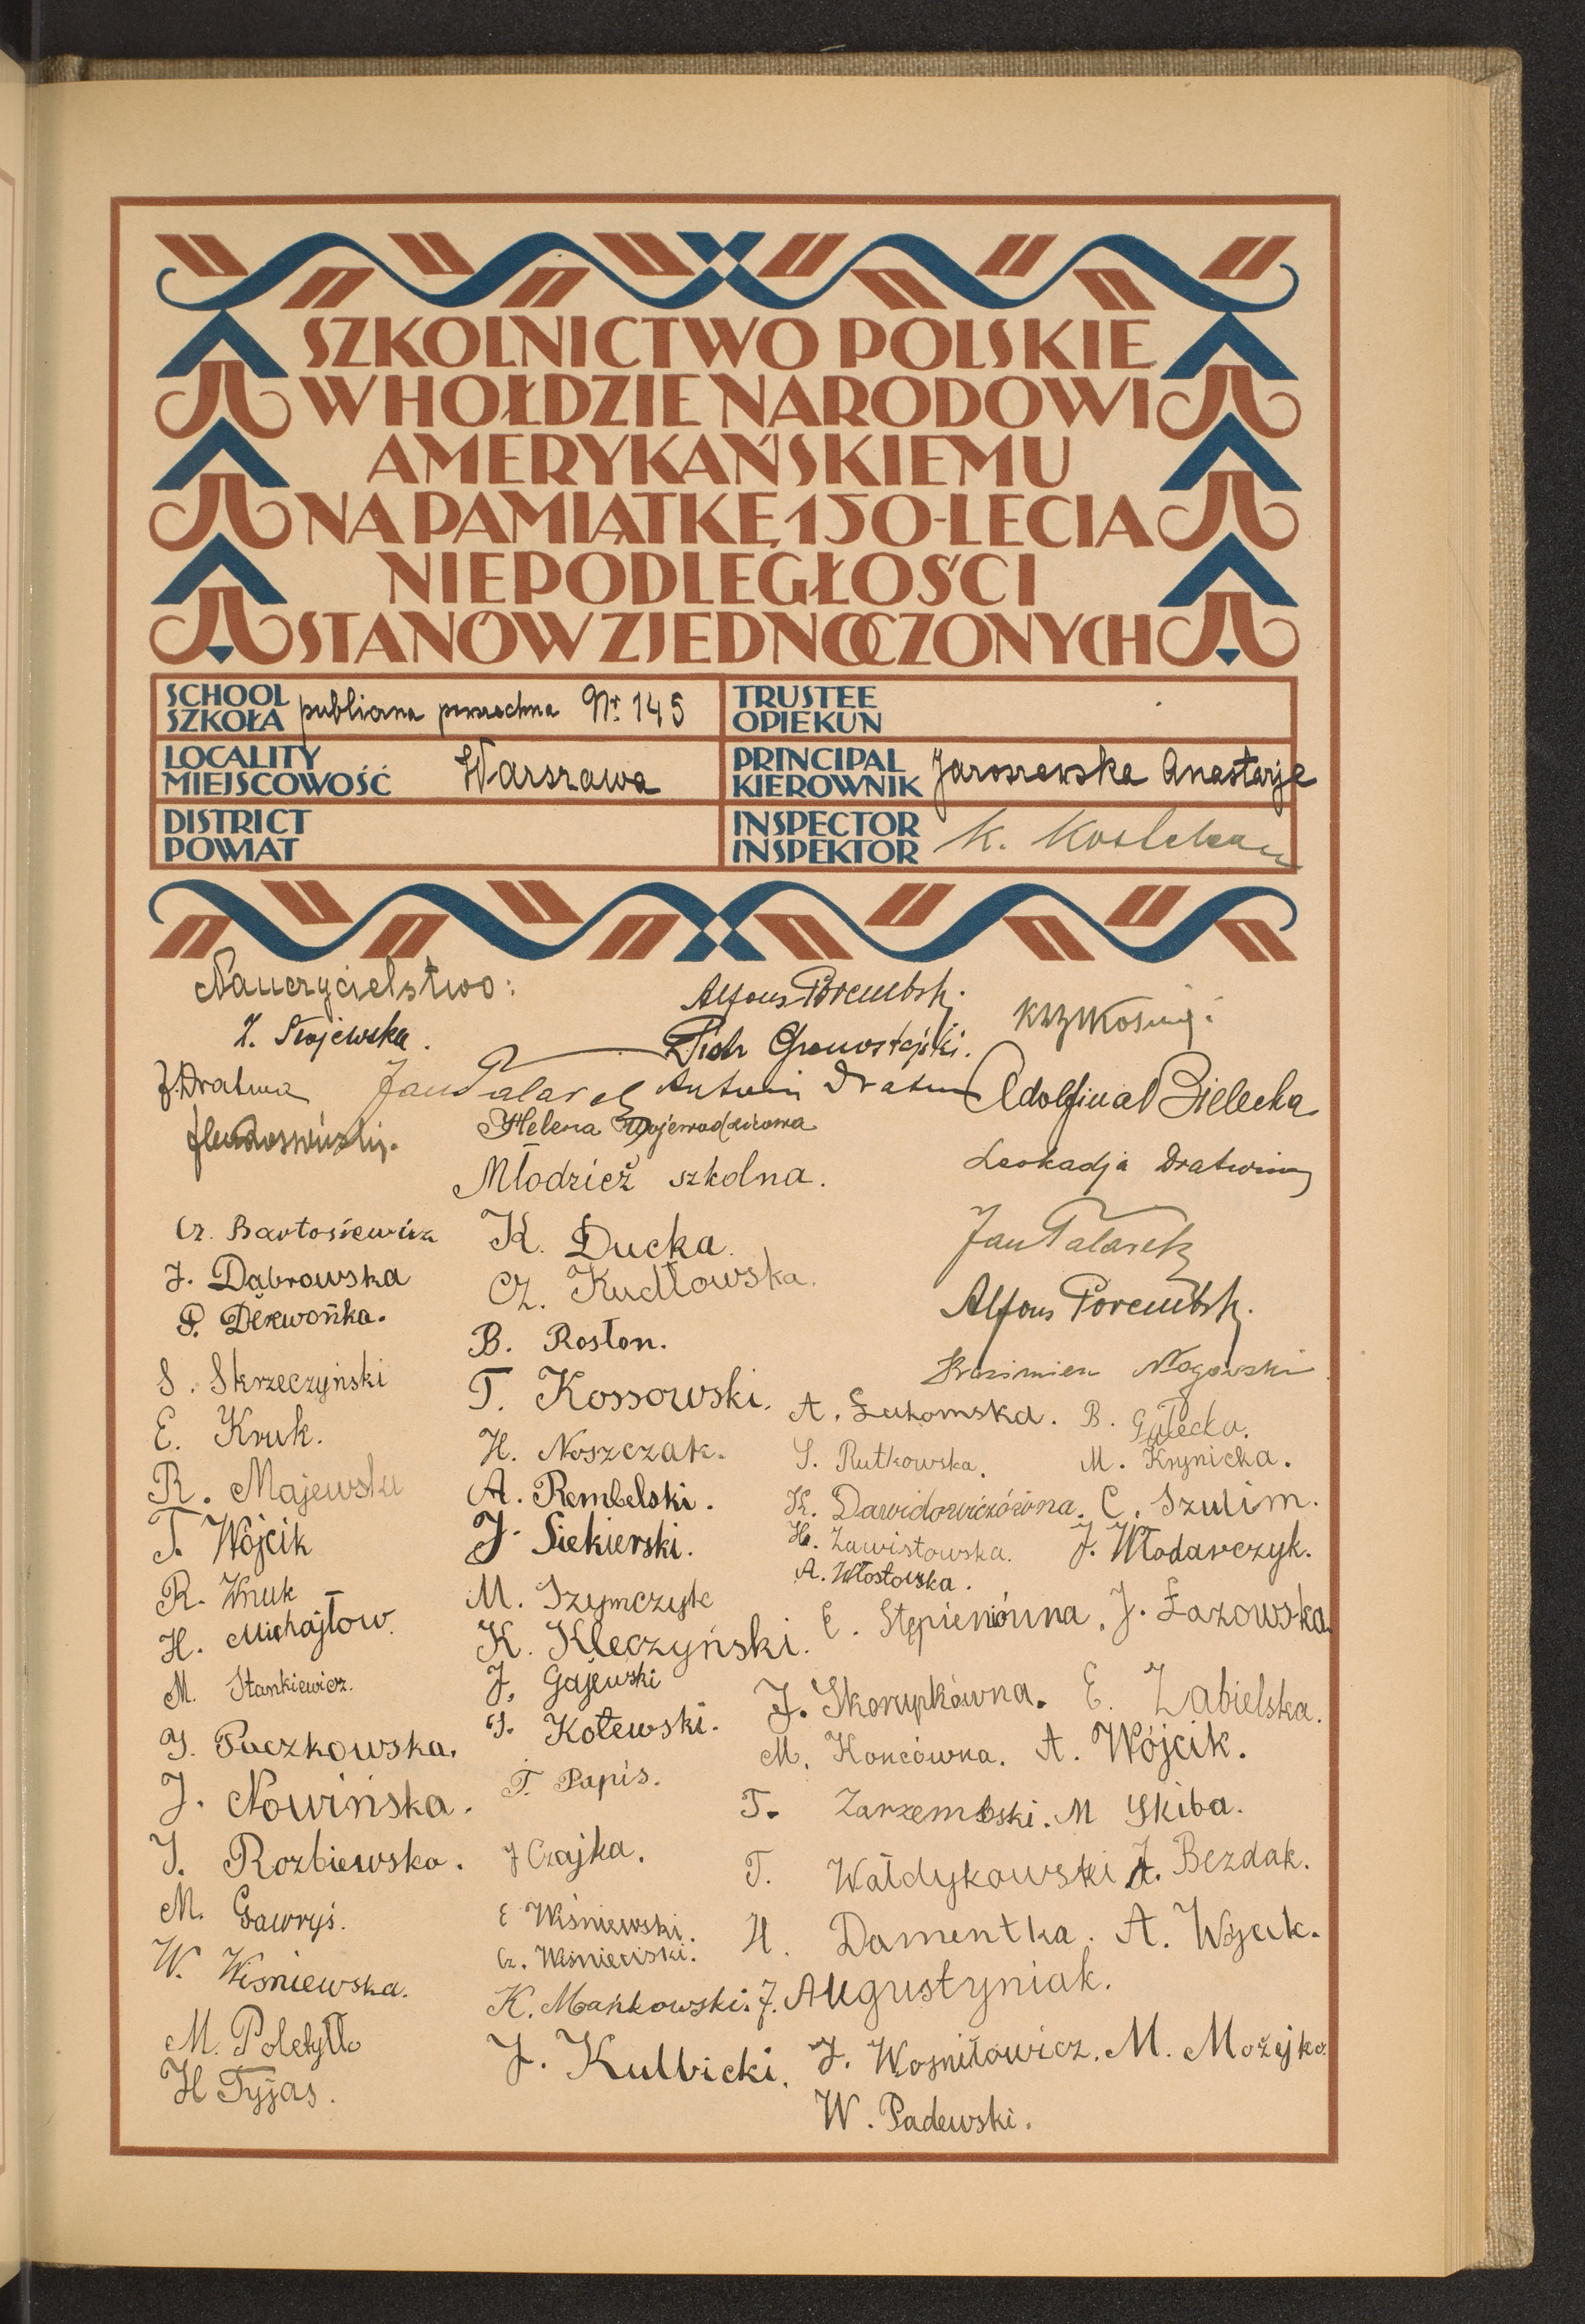 SZKOLNICTWO POLSKIE
W HOŁDZIE NARODOWI
AMERYKAŃSKIEMU
NA PAMIĄTKĘ 150-LECIA
NIEPODLEGŁOŚCI
STANÓW ZJEDNOCZONYCH
SCHOOL
SZKOŁA publiczna powszechna Nr. 145
TRUSTEE
OPIEKUN
LOCALITY
MIEJSCOWOŚĆ Warszawa
PRINCIPAL
KIEROWNIK Jaroszewska Anastazja
DISTRICT
POWIAT
INSPECTOR
INSPEKTOR K.
Nauczycielstwo:
Alfons Porembsk.
Piotr Gronostajski.
J. Dratwa
Jan Talarek
Antoni Dratwa
Adolfina Bielecka
Helena Wojewodzicowa
Leokadja
Młodzież szkolna.
Jan Talarek
Alfons Porembsk.
Kazimierz
Cz. Bartosiewicz
J. Dąbrowska
P. Dzwońka.
S. Skrzeczyński
E. Kruk.
R. Majewska
T. Wójcik
R. Wnuk
H. Michajłow.
M. Stankiewicz.
J. Paczkowska.
J. Nowińska.
J. Rozbiewska.
M. Gawryś.
W. Wiśniewska.
M. Połetyłło
H Tyjas.
K. Ducka.
Cz. Kudłowska.
B. Rosłon.
T. Kossowski.
H. Noszczak.
A. Rembelski.
J. Siekierski.
M. Szymczyk
K. Kleczyński.
J. Gajewski
J. Kotewski.
T. Papis.
J Czajka.
E Wiśniewski.
Cz. Wiśniewski.
K. Mańkowski. J. Augustyniak.
J. Kulbicki. J. Wojniłowicz. M. Możejko.
W. Padewski.
A. Łukomska. B. Gałecka.
S. Rutkowska. M. Krynicka.
K. Dawidowiczówna. C. Szulim.
H. Zawistowska. J. Włodarczyk.
A. Włostowska.
E. Stępieniówna. J. Łazowska.
J. Skorupkówna. E. Zabielska.
M. Koncówna. A. Wójcik.
T. Zarzembski. M Skiba.
T. Wałdykowski A. Bezdak.
H. Damentka. A. Wójcik.